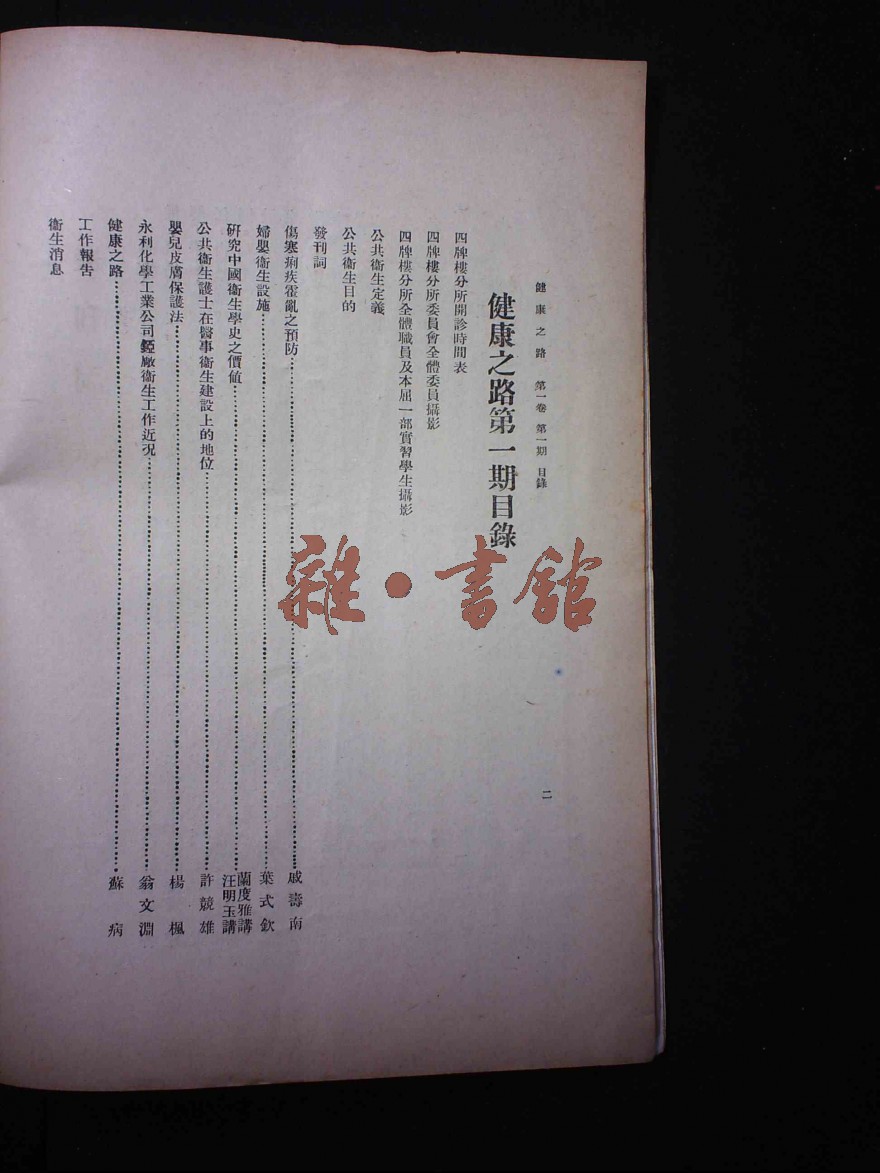 健康之路 第一卷 第一期 目錄
二
健康之路第一期目錄
四牌樓分所開診時間表
四牌樓分所委員會全體委員攝影
四牌樓分所全體職員及本屆一部實習學生攝影
公共衞生定義
公共衞生目的
發刊詞
傷寒痢疾霍亂之預防……戚壽南
婦嬰衞生設施……葉式欽
研究中國衞生學史之價值……蘭度雅講 汪明玉講
公共衞生護士在醫事衞生建設上的地位……許競雄
嬰兒皮膚保護法……楊楓
永利化學工業公司錏廠衞生工作近況……翁文淵
健康之路……蘇病
工作報告
衞生消息
雜·書館